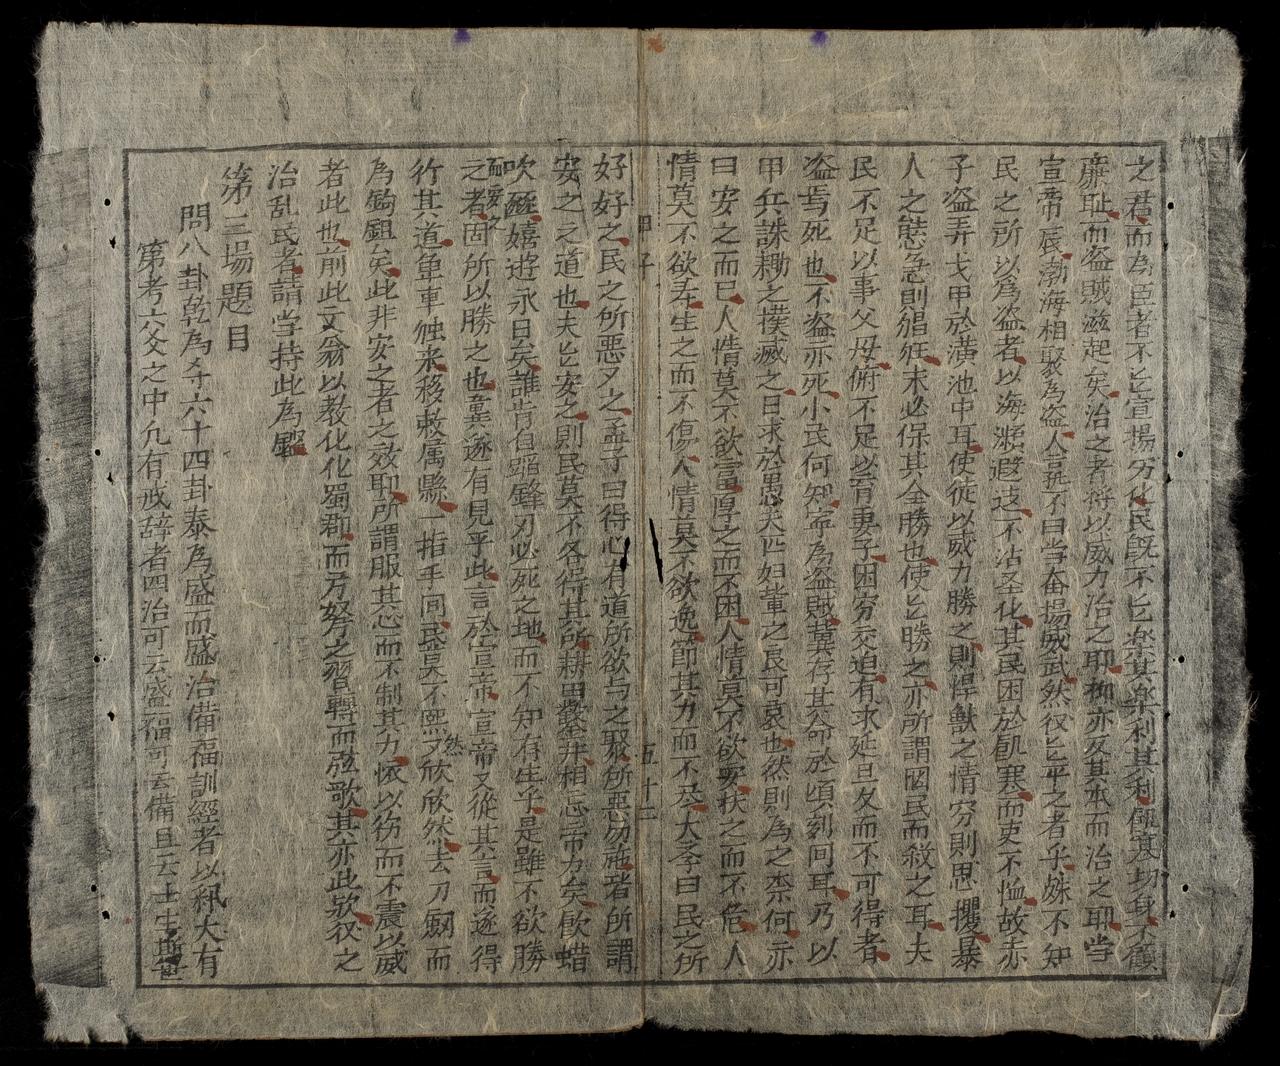 之君而為臣者不㠯宣揚労化民既不㠯楽其楽利其利饑寒切身不顧
廉耻而盗賊滋起矣治之者将以威力治之耶抑亦反其本而治之耶当
宣帝辰渤海相聚為盗人言孰不曰当奮揚威武然後㠯平之者乎姝不知
民之所以為盗者以海瀕遐遠不沾圣化其民困於飢寒而吏不恤故赤
子盗弄戈甲於潢池中耳使徒以威力勝之則悍獣之情穷則思攫暴
人之態急則猖狂未必保其全勝也使㠯勝之亦所謂罔民而殺之耳夫
民不足以事父母俯不足以育妻子困穷交迫有求延旦夕而不可得者
盗焉死也不盗亦死小民何知寧為盗賊冀存其命於頃刻间耳乃以
甲兵誅耡之撲滅之日求於愚夫匹妇輩之良可哀也然則為之柰何亦
曰安之而已人情莫不欲富厚之而不困人情莫不欲安扶之而不危人
情莫不欲寿生之而不傷人情莫不欲逸節其力而不尽大圣曰民之所
甲子
五十二
好好之民之所惡夕之孟子曰得心有道所欲与之聚所惡勿施者所謂
安之之道也夫㠯安之則民莫不各得其所耕田鑿井相忘帝力矣飲蜡
吹豳嬉遊永日矣誰肯自蹈鋒刃必死之地而不知有生乎是雖不欲勝
之而安之者固所以勝之也龔遂有見乎此言於宣帝宣帝又從其言而遂得
行其道单車独来移敕属縣一指手间民莫不熙然又欣欣然去刀劔而
為鈎鉏矣此非安之者之效耶所謂服其心而不制其力懷以徳而不震以威
者此也前此文翁以教化化蜀郡而刀弩之習轉而弦歌其亦此欤後之
治乱民者請当持此為鑒
第三場題目
問八卦乾為夲六十四卦泰為盛而盛治備福訓經者以釈大有
第考六爻之中凢有戒辞者四治可云盛福可云備且云士生斯世